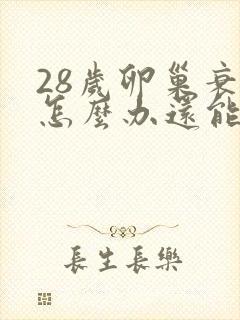 28歲卵巢衰
怎麼办還能
長生長樂